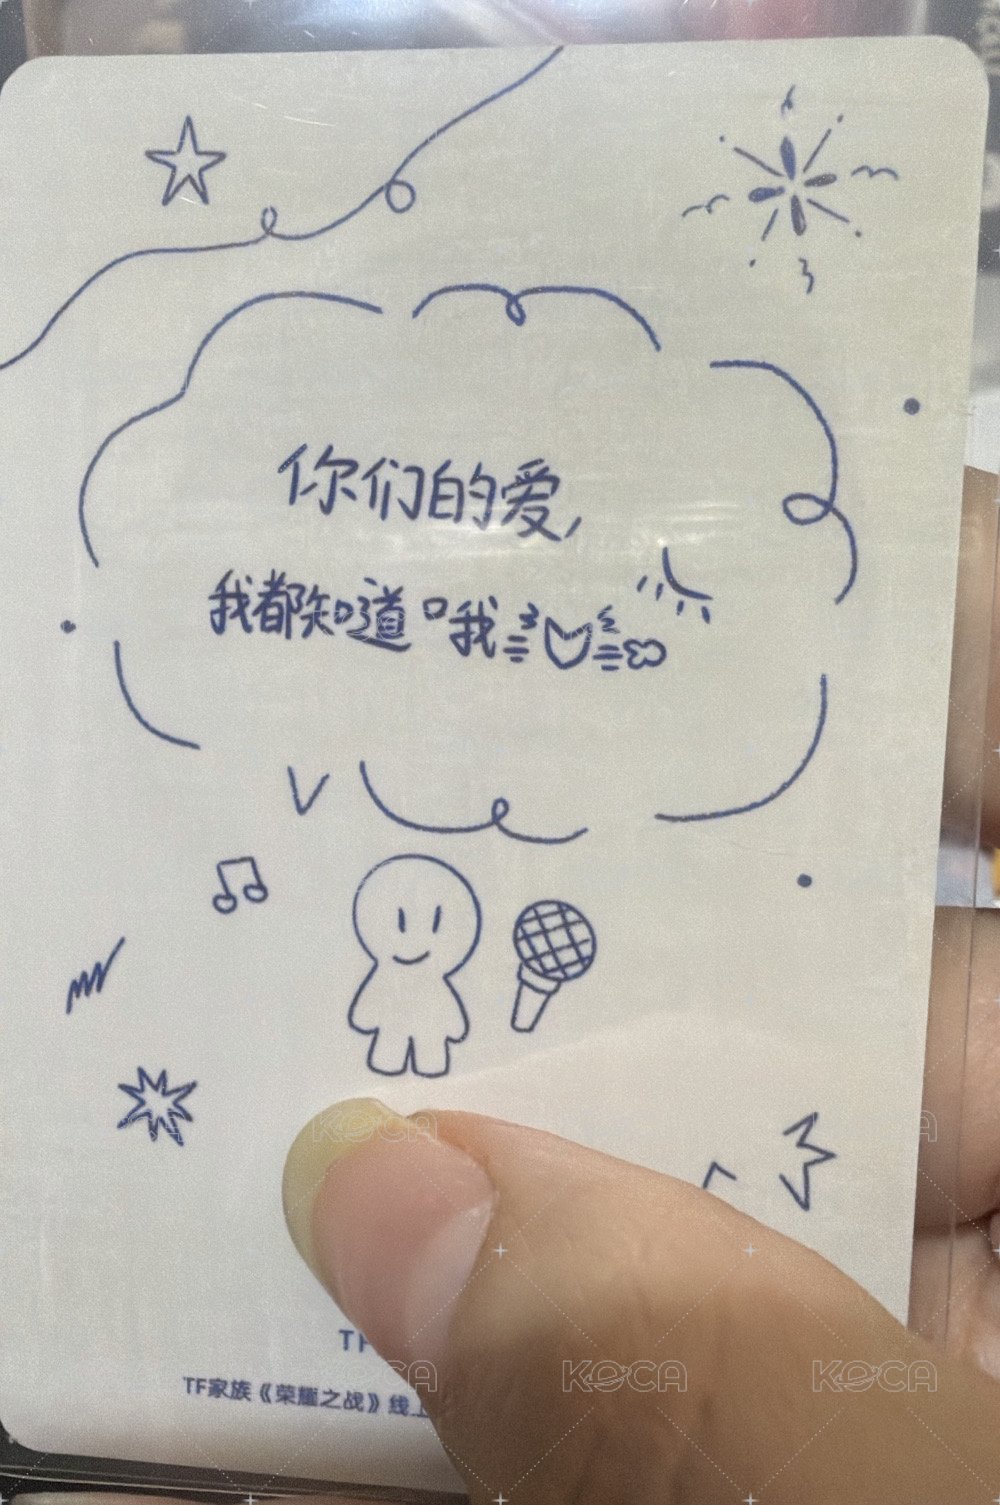 你们的爱,
我都知道
TF家族《荣耀之战》线上
KOCA
KOCA
KOCA
KOCA